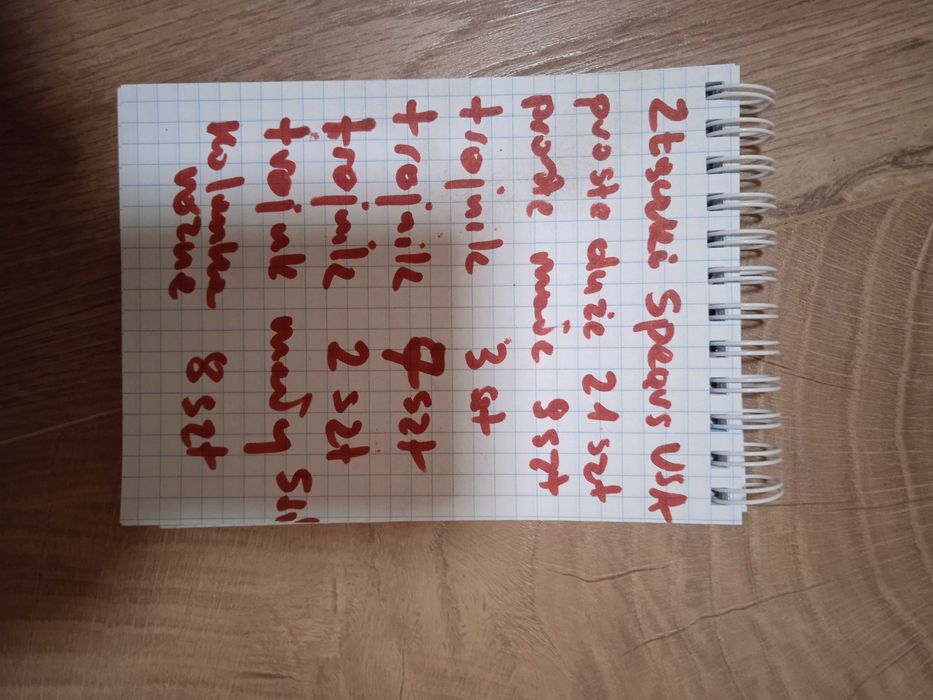 Złączki Spears USA
proste duże 21 szt
proste małe 9 szt
trojnik 3 szt
trojnik 7 szt
trojnik 2 szt
trojnik mały
Kolanka
różne 8 szt